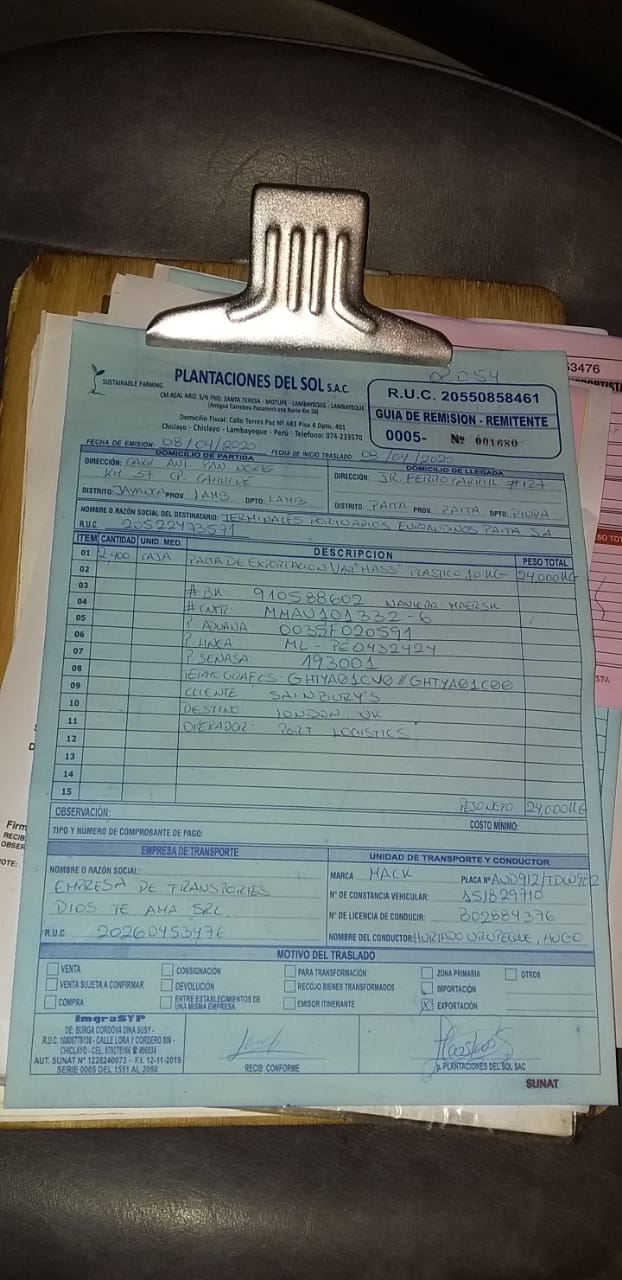 2054
53476
SUSTAINABLE FARMING
PLANTACIONES DEL SOL S.A.C.
CM REAL NRO. S/N FND. SANTA TERESA - MOTUPE - LAMBAYEQUE - LAMBAYEQUE
(Antigua Carretera Panamericana Norte Km 56)
Domicilio Fiscal: Calle Torres Paz Nº 683 Piso 4 Dpto. 401
Chiclayo - Chiclayo - Lambayeque - Perú - Telefono: 074-233570
R.U.C. 20550858461
GUIA DE REMISION - REMITENTE
0005- Nº 001680
FECHA DE EMISIÓN: 08/04/2020 FECHA DE INICIO TRASLADO: 09/04/2020
DOMICILIO DE PARTIDA
DIRECCIÓN: CARR ANT. PAN NORTE
KM 37 CP.
DISTRITO: JAYANCA PROV. LAMB. DPTO: LAMB
DOMICILIO DE LLEGADA
DIRECCIÓN: JR. FERROCARRIL #127
DISTRITO PAITA PROV. PAITA DPTO: PIURA
NOMBRE O RAZÓN SOCIAL DEL DESTINATARIO: TERMINALES PORTUARIOS EUROANDINOS PAITA SA
R.U.C. 20522473571
ITEM CANTIDAD UNID. MED. DESCRIPCION PESO TOTAL
01 2,400 CAJA PALTA DE EXPORTACION VAR "HASS" PLASTICO 10 KG 24,000KG
02
03 # BK: 910588602 NAVIERA MAERSK
04 # CNTR: MMAU101332-6
05 P. ADUANA 0035F020591
06 P. LINEA ML-PE0432424
07 P. SENASA 193001
08 TERMOGRAFOS: GHTYA01CV0 // GHTYA01C00
09 CLIENTE: SAINBURY'S
10 DESTINO: LONDON, UK
11 OPERADOR: PORT LOGISTICS
12
13
14
15
PESO NETO 24,000KG
OBSERVACIÓN: COSTO MÍNIMO:
TIPO Y NÚMERO DE COMPROBANTE DE PAGO:
EMPRESA DE TRANSPORTE
NOMBRE O RAZÓN SOCIAL:
EMPRESA DE TRANSPORTES
DIOS TE AMA SRL.
R.U.C. 20260453476
UNIDAD DE TRANSPORTE Y CONDUCTOR
MARCA MACK PLACA Nº
Nº DE CONSTANCIA VEHICULAR: 151829710
Nº DE LICENCIA DE CONDUCIR: B02884376
NOMBRE DEL CONDUCTOR: HURTADO URUPEQUE, HUGO
MOTIVO DEL TRASLADO
VENTA CONSIGNACIÓN PARA TRANSFORMACIÓN ZONA PRIMARIA OTROS
VENTA SUJETA A CONFIRMAR DEVOLUCIÓN RECOJO BIENES TRANSFORMADOS IMPORTACIÓN
COMPRA ENTRE ESTABLECIMIENTOS DE UNA MISMA EMPRESA EMISOR ITINERANTE X EXPORTACIÓN
ImgraSYP
DE: BURGA CORDOVA DINA SUSY -
R.U.C. 10006778136 - CALLE LORA Y CORDERO 808 -
CHICLAYO - CEL. 979275166 496534
AUT. SUNAT Nº 1228240073 - F.I. 12-11-2019
SERIE 0005 DEL 1551 AL 2050
RECIBI CONFORME
p. PLANTACIONES DEL SOL SAC
SUNAT